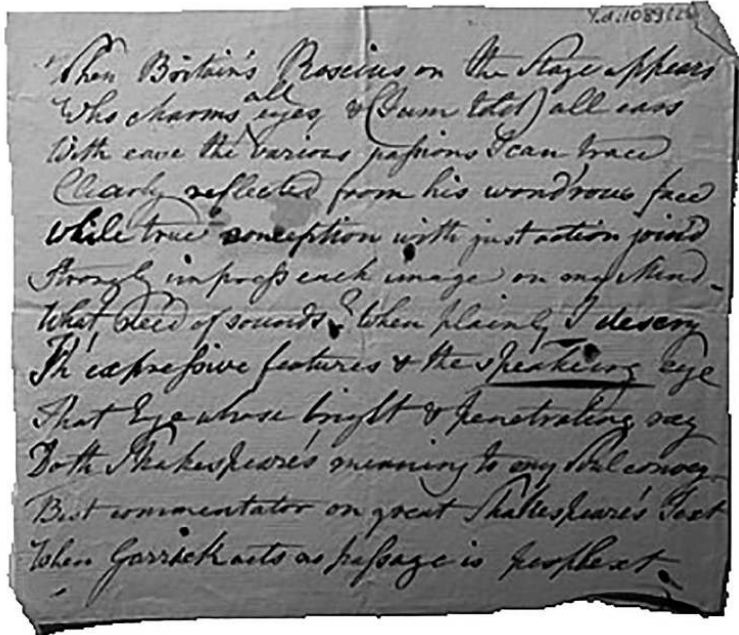 Y.d.1089(26)
When Britain's Roscius on the Stage appears
Who charms all eyes & (I am told) all ears
With ease the various passions I can trace
Clearly reflected from his wond'rous face
while true conception with just action join'd
Strongly impress each image on my Mind -
What need of sounds? When plainly I descry
Th' expressive features & the speaking eye
That Eye whose bright & penetrating ray
Doth Shakespeare's meaning to my Soul convey
Best commentator on great Shakespeare's Text
When Garrick acts no passage is perplext